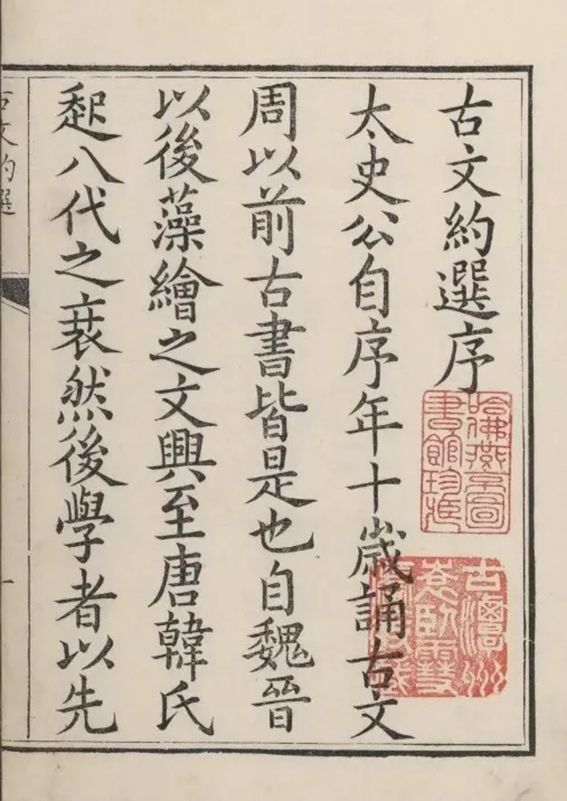 古文約選序
太史公自序年十歲誦古文
周以前古書皆是也自魏晉
以後藻繪之文興至唐韓氏
起八代之衰然後學者以先
古文約選
一
哈佛燕京圖
書館珍藏